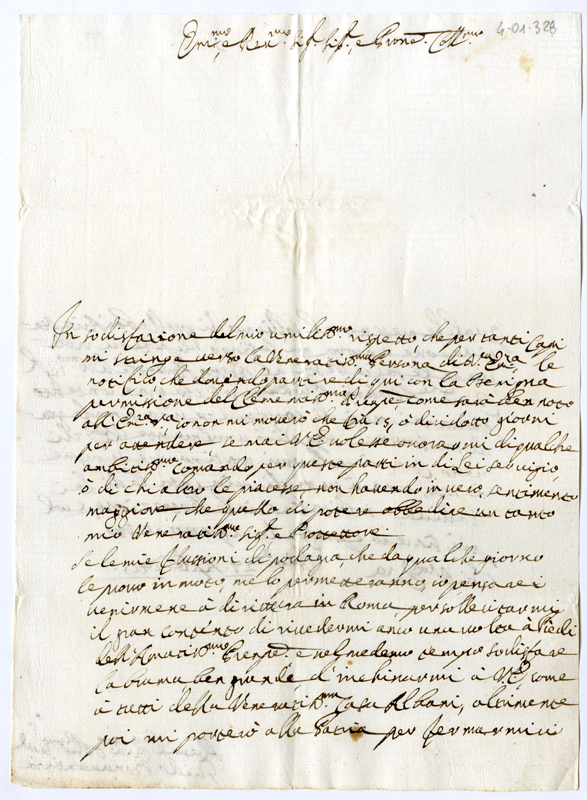 Em.mo e Rev.mo Sig.r Sig.r e Pron. Coll.mo
4-01-328
In sodisfazione del mio umiliss.mo rispetto, che per tanti Capi
mi stringe verso la Veneratiss.ma Persona di V.ra Em.za, le
notifico che dovendo partire di qui con la Benigna
permissione del Clementiss.mo come sarà ben noto
all'Em.za V.ra, io non mi moverò che frà 15, ò dicidotto giorni
per attendere se mai V.E. volesse onorarmi di qualche
ambitiss.mo Comando per queste parti in di Lei servigio,
ò di chi altro le piacesse, non havendo in vero sentimento
maggiore, che quello di potere obbedire un tanto
mio Veneratiss.mo Sig.r e Protettore
Se le mie flussioni di podagra, che da qualche giorno
le provo in moto, me lo permetteranno, io pensarei
venirmene à dirittura in Roma per sollecitarmi
il gran contento di rivedermi anco una volta à Piedi
dell'Amatiss.mo e nel medemo tempo sodisfare
la brama ben grande d'inchinarmi à V.E., come
à tutti della Veneratiss.ma Casa Albani, altrimente
poi mi porterò alla Patria per fermarmici